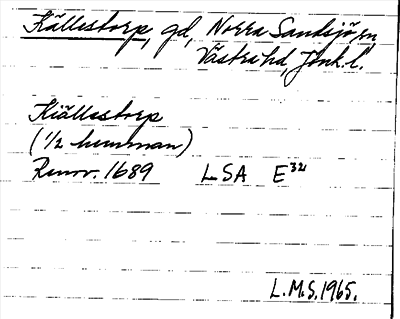 Källestorp, gd, Norra Sandsjö sn,
Västra hd, Jönk. l.
Kiällestorp
(1/2 hemman)
Renov. 1689 LSA E32
L.M.S. 1965.